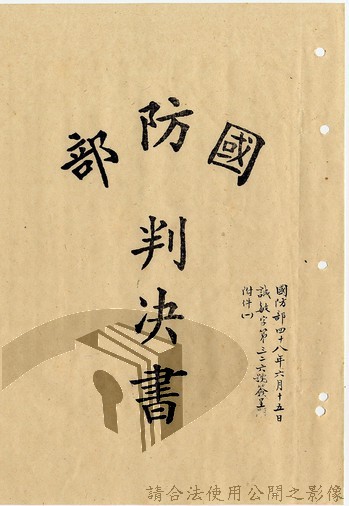 國防部
判决書
國防部四十八年六月十五日
誠敏字第三二六號簽呈
附件(一)
請合法使用公開之影像